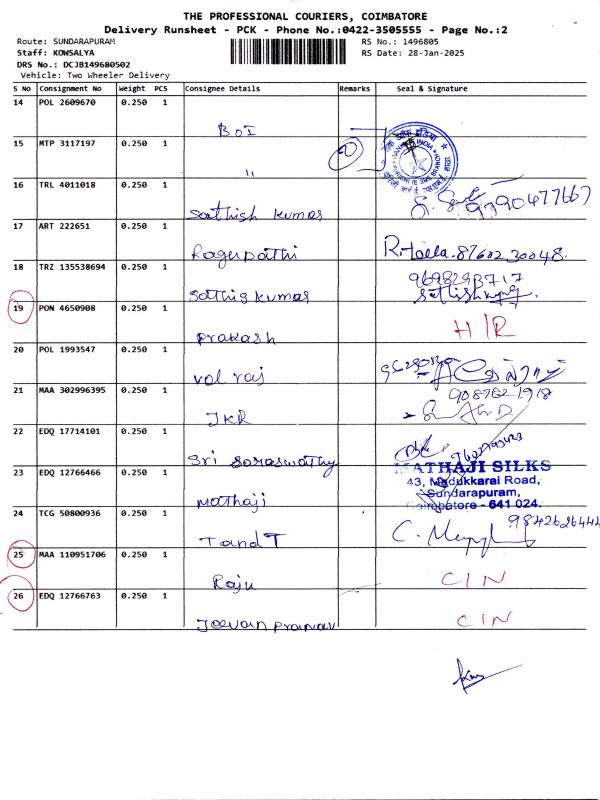 THE PROFESSIONAL COURIERS, COIMBATORE
Delivery Runsheet - PCK - Phone No.:0422-3505555 - Page No.:2
Route: SUNDARAPURAM
RS No.: 1496805
Staff: KOWSALYA
RS Date: 28-Jan-2025
DRS No.: DCJB149680502
Vehicle: Two Wheeler Delivery
S No Consignment No Weight PCS Consignee Details Remarks Seal & Signature
14 POL 2609670 0.250 1
BOI
15 MTP 3117197 0.250 1
"
16 TRL 4011018 0.250 1
Sathish kumar 9790477667
17 ART 222651 0.250 1
Ragupathi
18 TRZ 135538694 0.250 1
9698293717
Sathis kumar
19 PON 4650908 0.250 1
prakash H/R
20 POL 1993547 0.250 1
val raj
21 MAA 302996395 0.250 1
JKR
22 EDQ 17714101 0.250 1
Sri Saraswathy
MATHAJI SILKS
23 EDQ 12766466 0.250 1
43, Madukkarai Road,
Sundarapuram,
Coimbatore - 641 024.
Mathaji
24 TCG 50800936 0.250 1
9842626444
T and T
25 MAA 110951706 0.250 1
Raju CIN
26 EDQ 12766763 0.250 1
Jeevan Pranav CIN